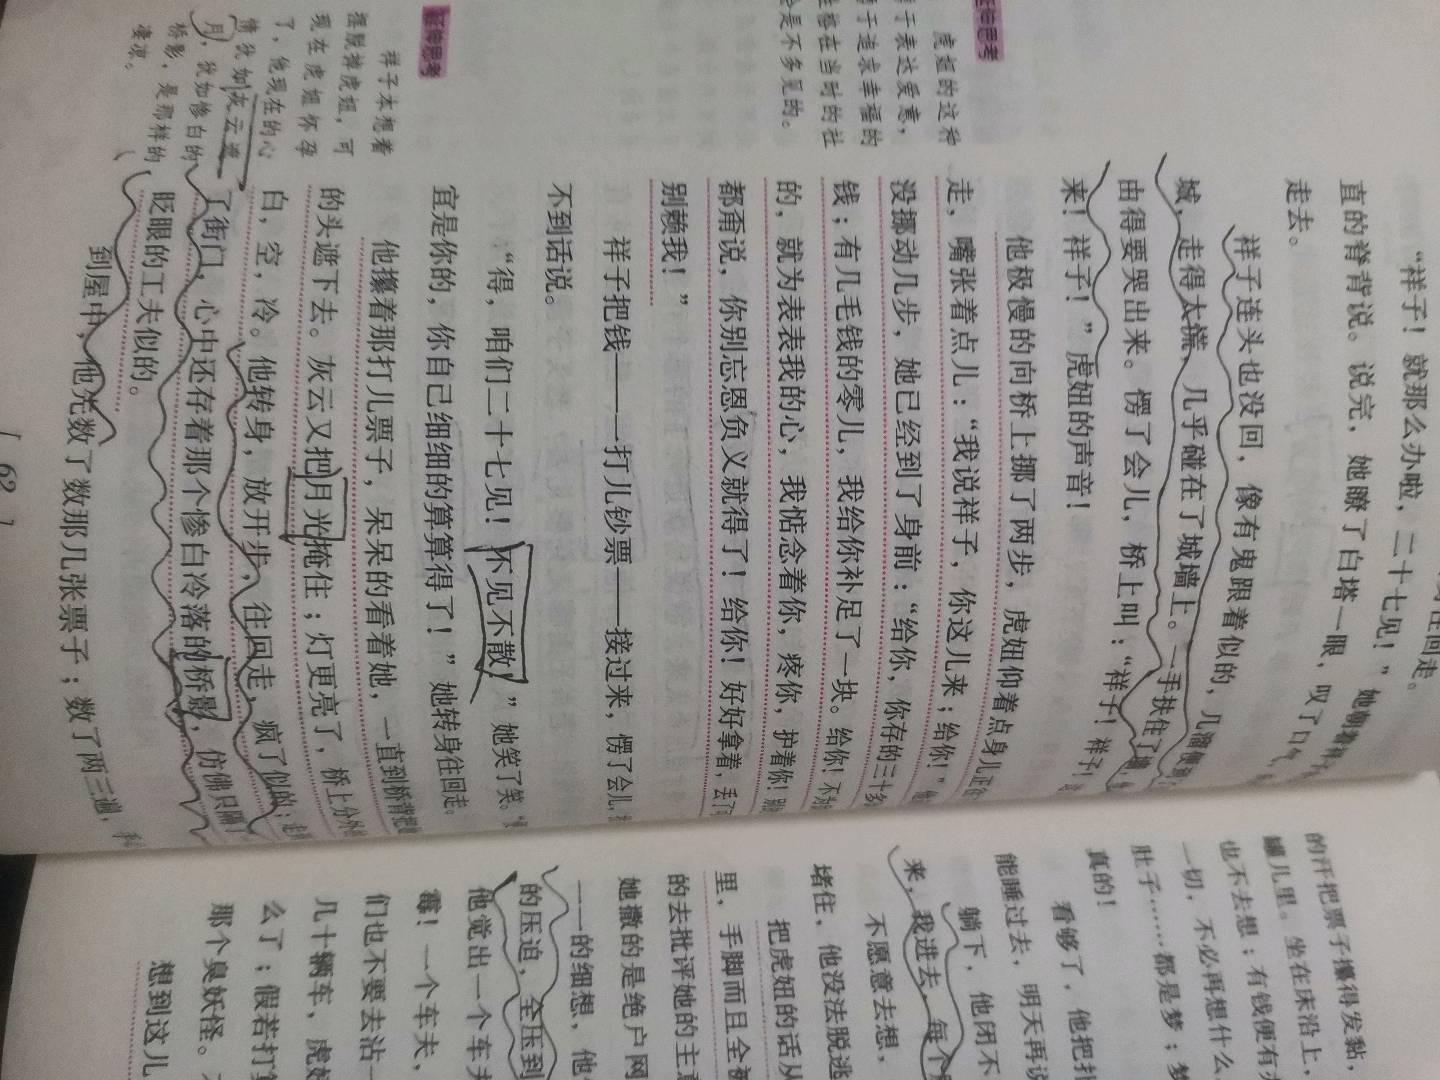 往回走。
“祥子！就那么办啦，二十七见！”她朝着祥子
直的脊背说。说完，她瞭了白塔一眼，叹了口气，
走去。
祥子连头也没回，像有鬼跟着似的，几溜便到
城，走得太慌，几乎碰在了城墙上。一手扶住了墙，
由得要哭出来。愣了会儿，桥上叫：“祥子！祥子！
来！祥子！”虎妞的声音！
他极慢的向桥上挪了两步，虎妞仰着点身儿正
走，嘴张着点儿：“我说祥子，你这儿来；给你！”
没挪动几步，她已经到了身前：“给你，你存的三十多
钱；有几毛钱的零儿，我给你补足了一块。给你！不为
的，就为表表我的心，我惦念着你，疼你，护着你！
都甭说，你别忘恩负义就得了！给你！好好拿着，丢了
别赖我！”
祥子把钱——一打儿钞票——接过来，愣了会儿，
不到话说。
“得，咱们二十七见！不见不散！”她笑了笑。
宜是你的，你自己细细的算算得了！”她转身往回走。
他攥着那打儿票子，呆呆的看着她，一直到桥背把
的头遮下去。灰云又把月光掩住；灯更亮了，桥上分外
白，空，冷。他转身，放开步，往回走，疯了似的；走
了街门，心中还存着那个惨白冷落的桥影，仿佛只隔
眨眼的工夫似的。
到屋中，他先数了数那几张票子；数了两三遍，手
[ 62 ]
延伸思考
虎妞的这种
于表达爱意，
于追求幸福的
格在当时的社
会是不多见的。
延伸思考
祥子本想着
摆脱掉虎妞，可
现在虎妞怀孕
了，他现在的心
情犹如灰云遮
月，犹如惨白的
桥影，是那样的
凄凉。
的汗把票子攥得发黏，
罐儿里。坐在床沿上，
也不去想；有钱便有
一切，不必再想什么
肚子……都是梦；梦
真的！
看够了，他把扑
能睡过去，明天再说
躺下，他闭不
来，我进去，每个
不愿意去想，
堵住，他没法脱逃
把虎妞的话从
里，手脚而且全被
的去批评她的主意
她撒的是绝户网
——的细想，他
的压迫，全压到
他觉出一个车夫
霉！一个车夫，
们也不要去沾一
几十辆车，虎妞
么了；假若打
那个臭妖怪。
想到这儿